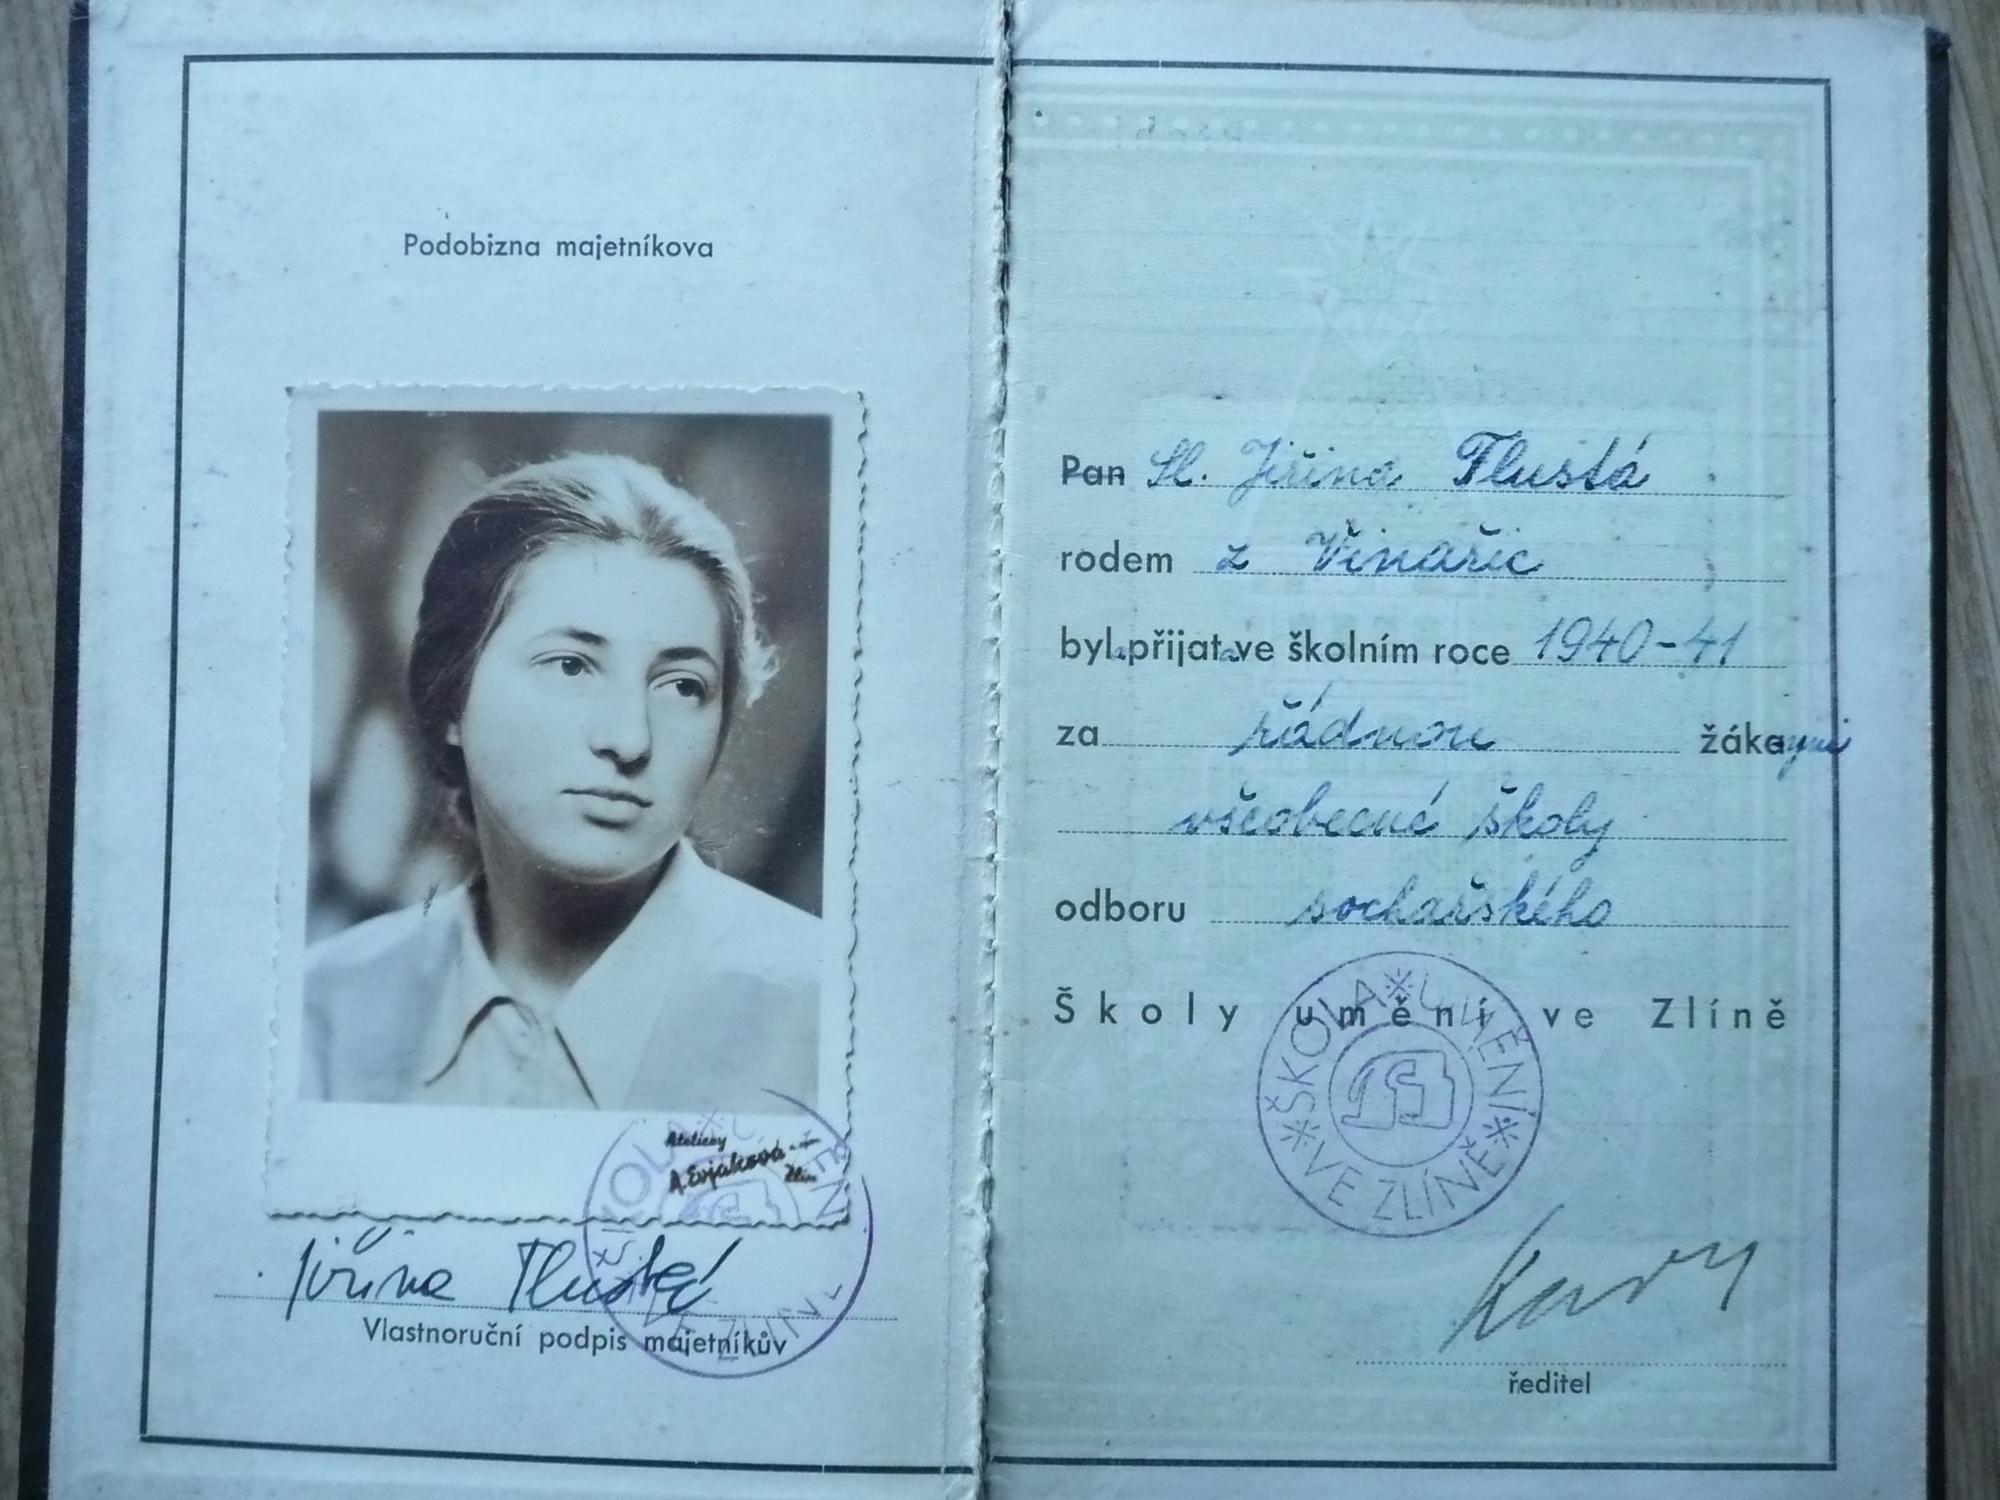 Podobizna majetníkova
Ateliery
A. Evjáková
Zlín
Jiřina Tlustá
Vlastnoruční podpis majetníkův
Pan Sl. Jiřina Tlustá
rodem z Vinařic
byla přijata ve školním roce 1940-41
za řádnou žákayni
všeobecné školy
odboru sochařského
Školy umění ve Zlíně
ŠKOLA UMĚNÍ VE ZLÍNĚ
ředitel